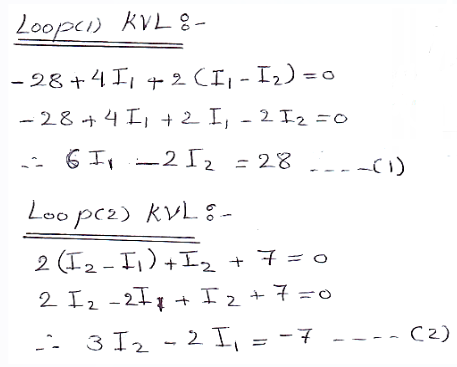 Loop(1) KVL :-
-28 + 4 I₁ + 2 (I₁ - I₂) = 0
-28 + 4 I₁ + 2 I₁ - 2 I₂ = 0
∴ 6 I₁ - 2 I₂ = 28 ----(1)
Loop(2) KVL :-
2 (I₂ - I₁) + I₂ + 7 = 0
2 I₂ - 2I₁ + I₂ + 7 = 0
∴ 3 I₂ - 2 I₁ = -7 ---- (2)